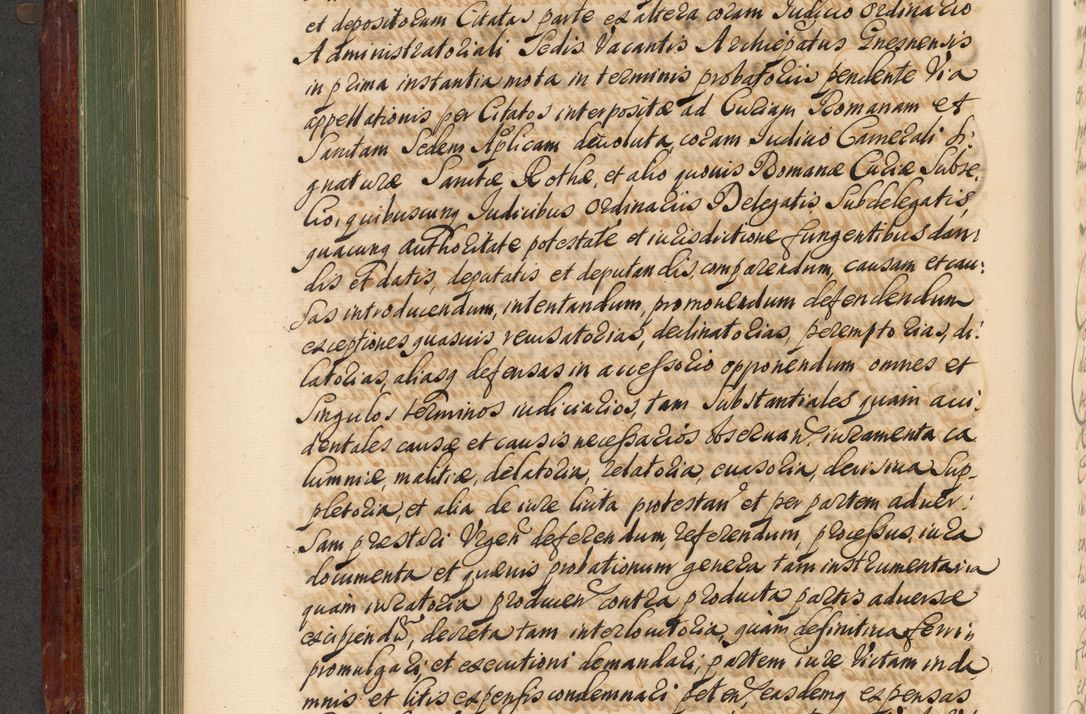 et depositorum Citatas parte ex altera coram Judicio Ordinario
Administratoriali Sedis Vacantis Archiepatus Gnesnensis
in prima instantia mota in terminis probatorii pendente Via
appellationis per Citatos interpositæ ad Curiam Romanam et
Sanctam Sedem Aplicam devoluta, coram Judicio Camerali Si:
gnaturæ Sanctæ Rothæ, et alio quovis Romanæ Curiæ Subse,
lio, quibuscunq Judicibus Ordinariis Delegatis, Subdelegatis,
quacunq authoritate potestate et iurisdictione fungentibus dan:
dis et datis, deputatis et deputandis, comparendum, causam et cau:
sas introducendum, intentandum, promovendum defendendum
exceptiones quasvis recusatorias, declinatorias, peremptorias, di:
latorias, aliasq defensas in accessorio opponendum omnes et
singulos terminos iudiciarios, tam substantiales quam acci:
dentales causæ et causis necessarios observan iuramenta ca
lumniæ, malitiæ, delatoria, relatoria, evasoria, decisiva Sup-
pletoria, et alia de iure licita protestan et per partem adver:
sam præstari Urgen deferendum, referendum, processus, iura
documenta et quævis probationum genera tam instrumentaria
quam iuratoria producen contra producta partis adversæ
excipiend, decreta tam interlocutoria, quam definitiva ferri
promulgari, et executioni demandari, partem iure Victam in da
mnis et litis expensis condemnari peten, easdemq expensas